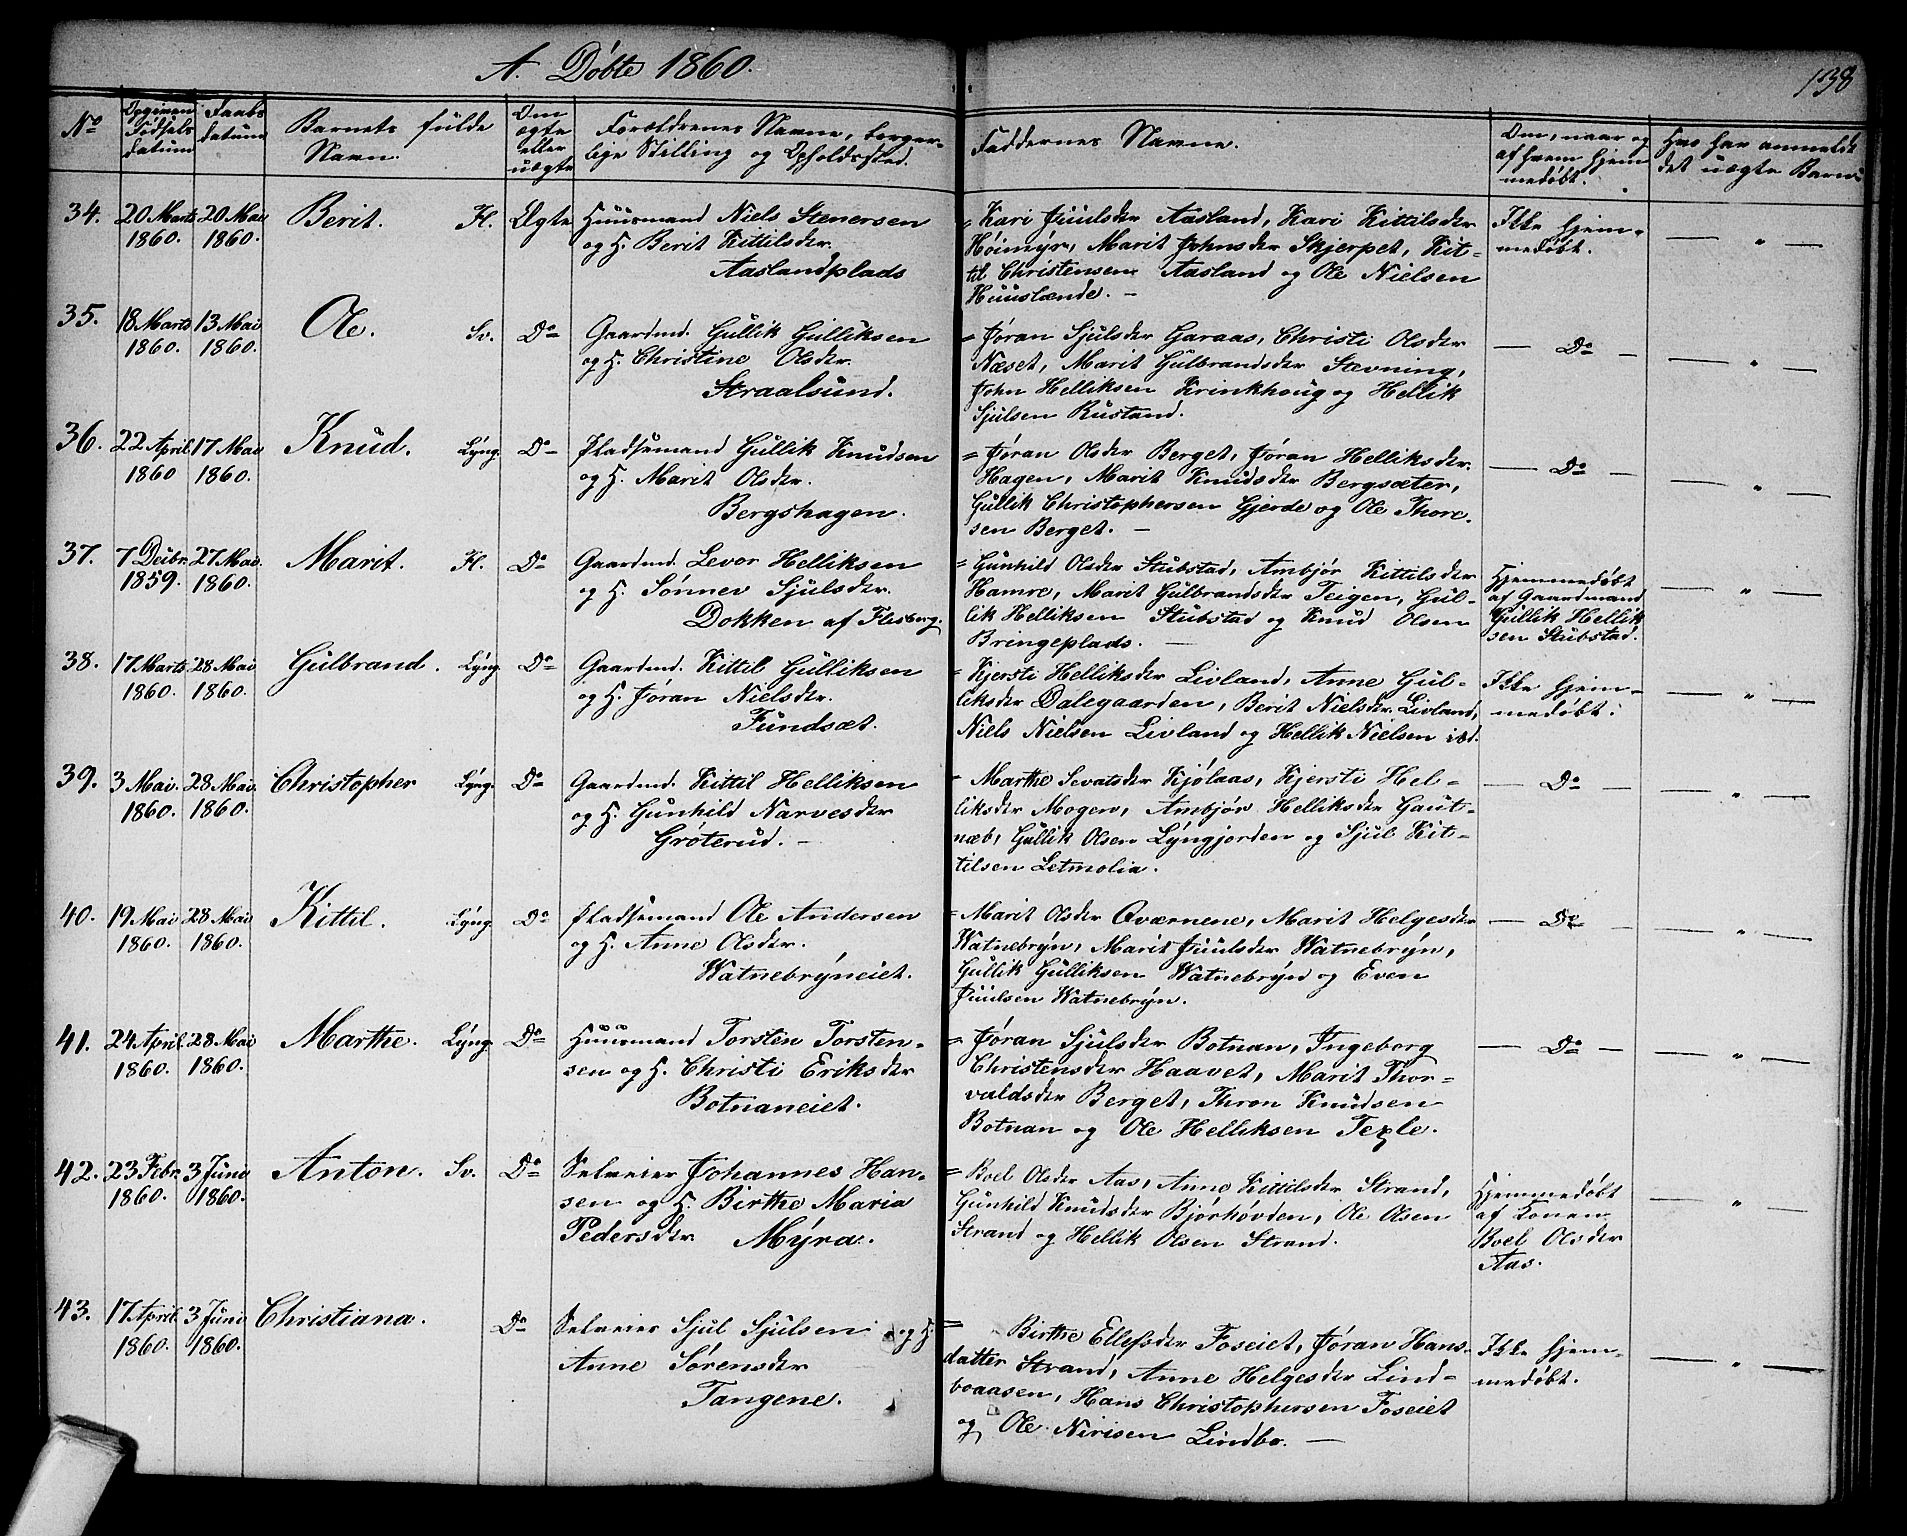 A. Döbte 1860.
138
No
Opgiven Fødsels datum
Daabs datum
Barnets fulde Navn.
Om ægte eller uægte
Forældrenes Navne, borger-
lige Stilling og Opholdssted.
Faddernes Navne.
Om, naar og af hvem hjem medøbt.
Hvo har anmeldt det uægte Barn
34. 20 Marts 1860. 20 Mai 1860. Berit. H. Ægte
Huusmand Niels Stenersen
og H. Berit Kittilsder.
Aaslandplads
= Kari Juulsder Aasland, Kari Kittilsder
Høimyr, Marit Johnsder Skjerpet, Kit-
til Christensen Aasland og Ole Nielsen
Huuslænde. —
Ikke hjem-
medøbt.
— " —
35. 18 Marts 1860. 13 Mai 1860. Ole. Sv. Do
Gaardmd. Gullik Gulliksen
og H. Christine Olsder.
Straalsund.
= Jøran Sjulsder Garaas, Christi Olsder
Næset, Marit Gulbrandsder Stevning,
John Helliksen Krinkhoug og Hellik
Sjulsen Rustand.
— Do —
— " —
36. 22 April 1860 17 Mai 1860. Knud. Lyng. Do
Pladsemand Gullik Knudsen
og H. Marit Olsder.
Bergshagen.
= Jøran Olsder Berget, Jøran Helliksder
Hagen, Marit Knudsder Bergsæter,
Gullik Christophersen Gjerde og Ole Thore-
sen Berget. —
— Do —
— " —
37. 7 Decbr. 1859. 27 Mai. 1860. Marit. H. Do
Gaardmd. Levor Helliksen
og H. Sønnev Sjulsder.
Dokken af Flesberg.
= Gunhild Olsder Stubstad, Ambjør Kittilsder
Hamre, Marit Gulbrandsder Teigen, Gul-
lik Helliksen Stubstad og Knud Olsen
Bringeplads. —
Hjemmedøbt
af Gaardmand
Gullik Hellik
sen Stubstad.
— " —
38. 17 Marts 1860. 28 Mai 1860. Gulbrand. Lyng Do
Gaardmd. Kittil Gulliksen
og H. Jøran Nielsder.
Fundsæt.
= Kjersti Helliksder Livland, Anne Gul-
liksder Dalegaarden, Berit Nielsder Livland,
Niels Nielsen Livland og Hellik Nielsen ibd.
Ikke hjem-
medøbt.
— " —
39. 3 Mai. 1860. 28 Mai. 1860. Christopher Lyng. Do
Gaardmd. Kittil Helliksen
og H. Gunhild Narvesder
Grøterud. —
= Marthe Sevatsder Kjølaas, Kjersti Hel-
liksder Mogen, Ambjør Helliksder Gaut-
næb, Gullik Olsen Lyngjorden og Sjul Kit-
tilsen Letmolia.
— Do —
— " —
40. 19 Mai 1860. 28 Mai 1860. Kittil. Lyng. Do
Pladsemand Ole Andersen
og H. Anne Olsder.
Watnebryneiet.
= Marit Olsder Qværnene, Marit Helgesder
Watnebryn, Marit Juulsder Watnebryn,
Gullik Gulliksen Watnebryn og Even
Juulsen Watnebryn.
— Do —
— " —
41. 24 April. 1860. 28 Mai 1860. Marthe. Lyng. Do
Huusmand Torsten Torsten-
sen og H. Christi Eriksder
Botnaneiet.
= Jøran Sjulsder Botnan, Ingeborg
Christensder Haavet, Marit Thor-
valdsder Berget, Thron Knudsen
Botnan og Ole Helliksen Texle.
— Do —
— " —
42. 23 Febr. 1860. 3 Juni 1860. Anton. Sv. Do
Selveier Johannes Han-
sen og H. Birthe Maria
Pedersder Myra.
= Boel Olsder Aas, Anne Kittilsder Strand,
Gunhild Knudsder Bjørhøvden, Ole Olsen
Strand og Hellik Olsen Strand.
Hjemmedøbt
af Konen
Boel Olsder
Aas.
— " —
43. 17 April. 1860. 3 Juni 1860. Christiana. Do
Selveier Sjul Sjulsen og H.
Anne Sørensder
Tangene.
= Birthe Ellefsder Foseiet, Jøran Hans-
datter Strand, Anne Helgesder Lind-
boaasen, Hans Christophersen Foseiet
og Ole Nirisen Lindbo. —
Ikke hjem-
medøbt.
— " —